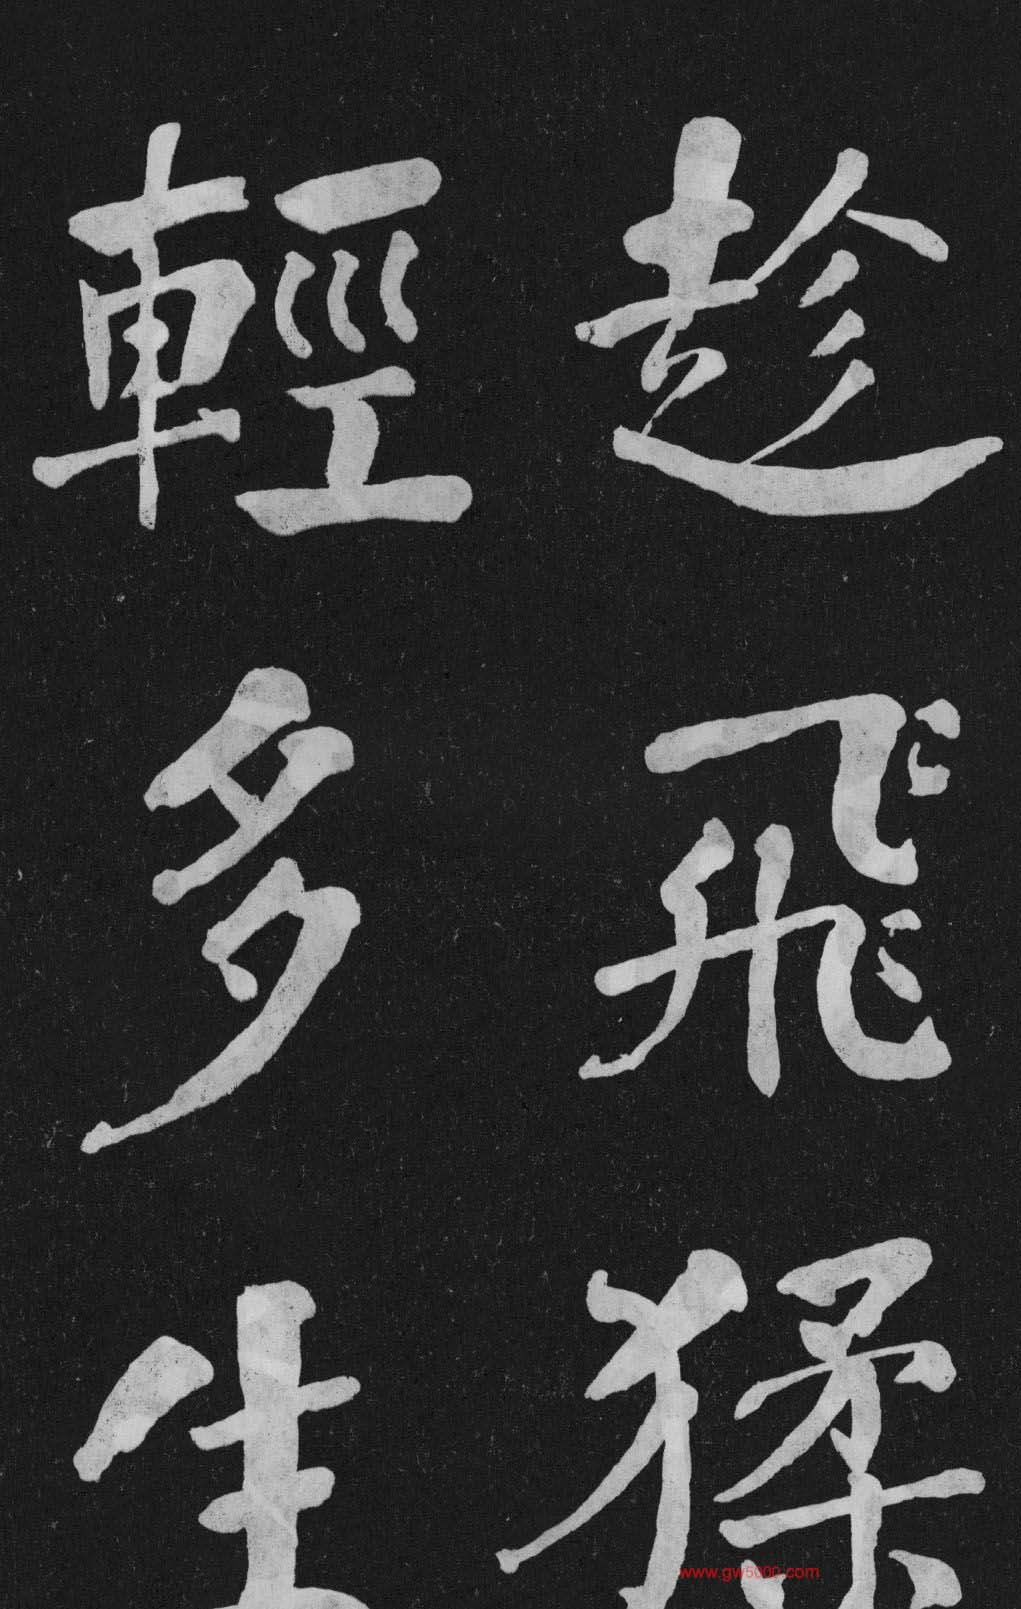 趁飛猱
輕多生
www.gw5000.com